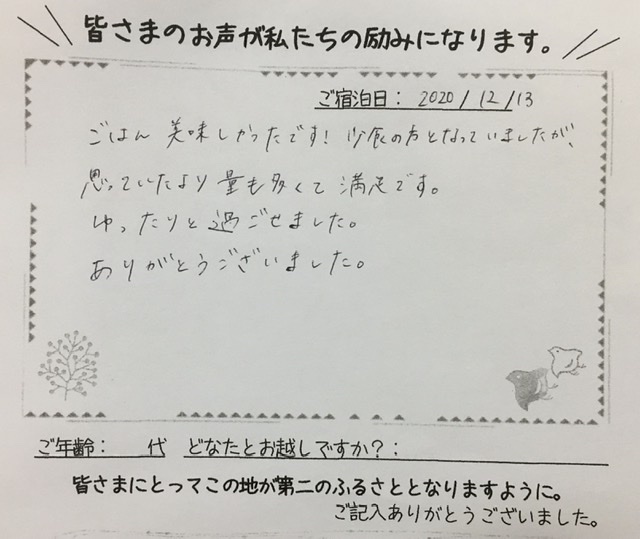 皆さまのお声が私たちの励みになります。
ご宿泊日: 2020/12/13
ごはん 美味しかったです! 少食の方となっていましたが、
思っていたより量も多くて満足です。
ゆったりと過ごせました。
ありがとうございました。
ご年齢: 代 どなたとお越しですか?:
皆さまにとってこの地が第二のふるさととなりますように。
ご記入ありがとうございました。